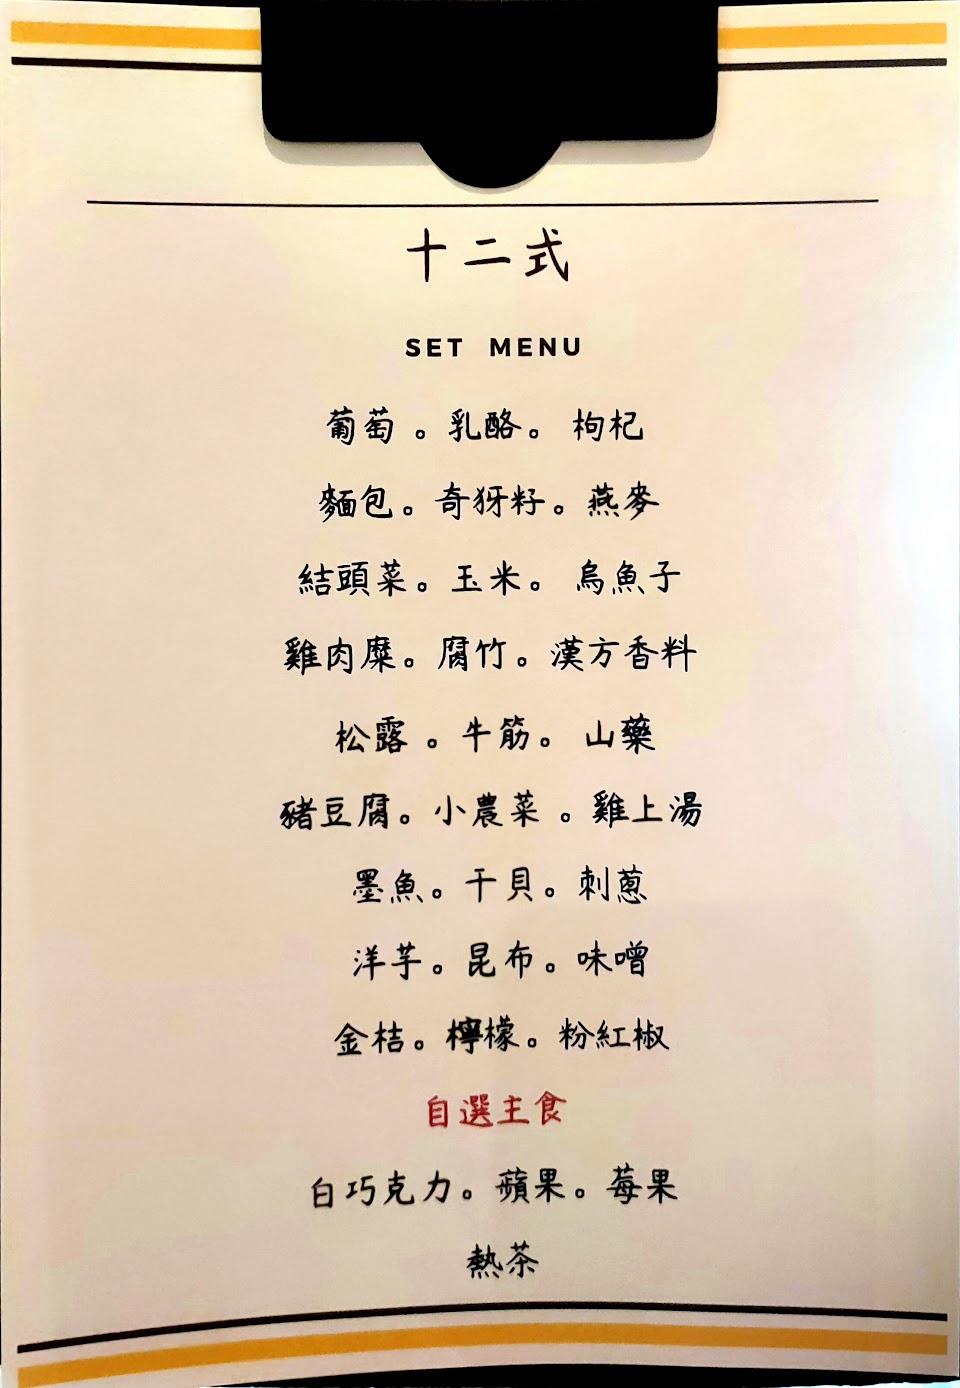 十二式
SET MENU
葡萄。乳酪。枸杞
麵包。奇犽籽。燕麥
結頭菜。玉米。烏魚子
雞肉糜。腐竹。漢方香料
松露。牛筋。山藥
豬豆腐。小農菜。雞上湯
墨魚。干貝。刺蔥
洋芋。昆布。味噌
金桔。檸檬。粉紅椒
自選主食
白巧克力。蘋果。莓果
熱茶